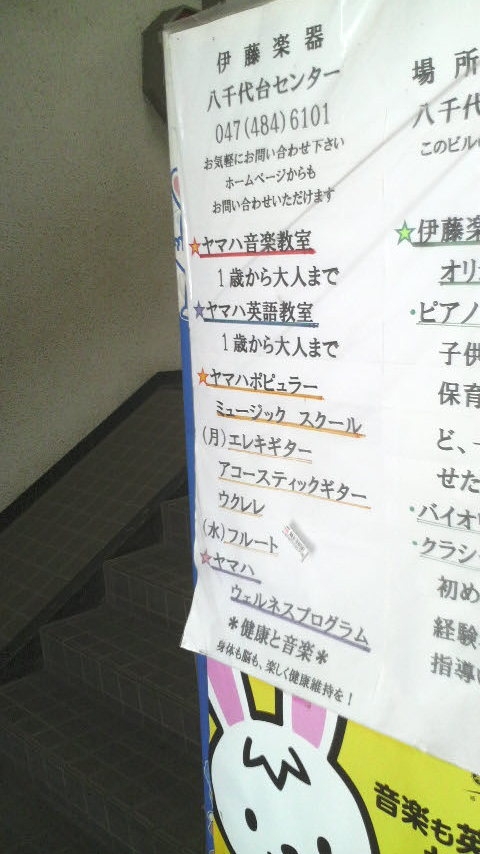 伊藤楽器
八千代台センター
047(484)6101
お気軽にお問い合わせ下さい
ホームページからも
お問い合わせいただけます
★ヤマハ音楽教室
1歳から大人まで
★ヤマハ英語教室
1歳から大人まで
★ヤマハポピュラー
ミュージック スクール
(月)エレキギター
アコースティックギター
ウクレレ
(水)フルート
★ヤマハ
ウェルネスプログラム
*健康と音楽*
身体も脳も、楽しく健康維持を!
場所
八千代
このビル
★伊藤楽
オリ
・ピアノ
子供
保育
ど、
せた
・バイオ
・クラシ
初め
経験
指導
音楽も英